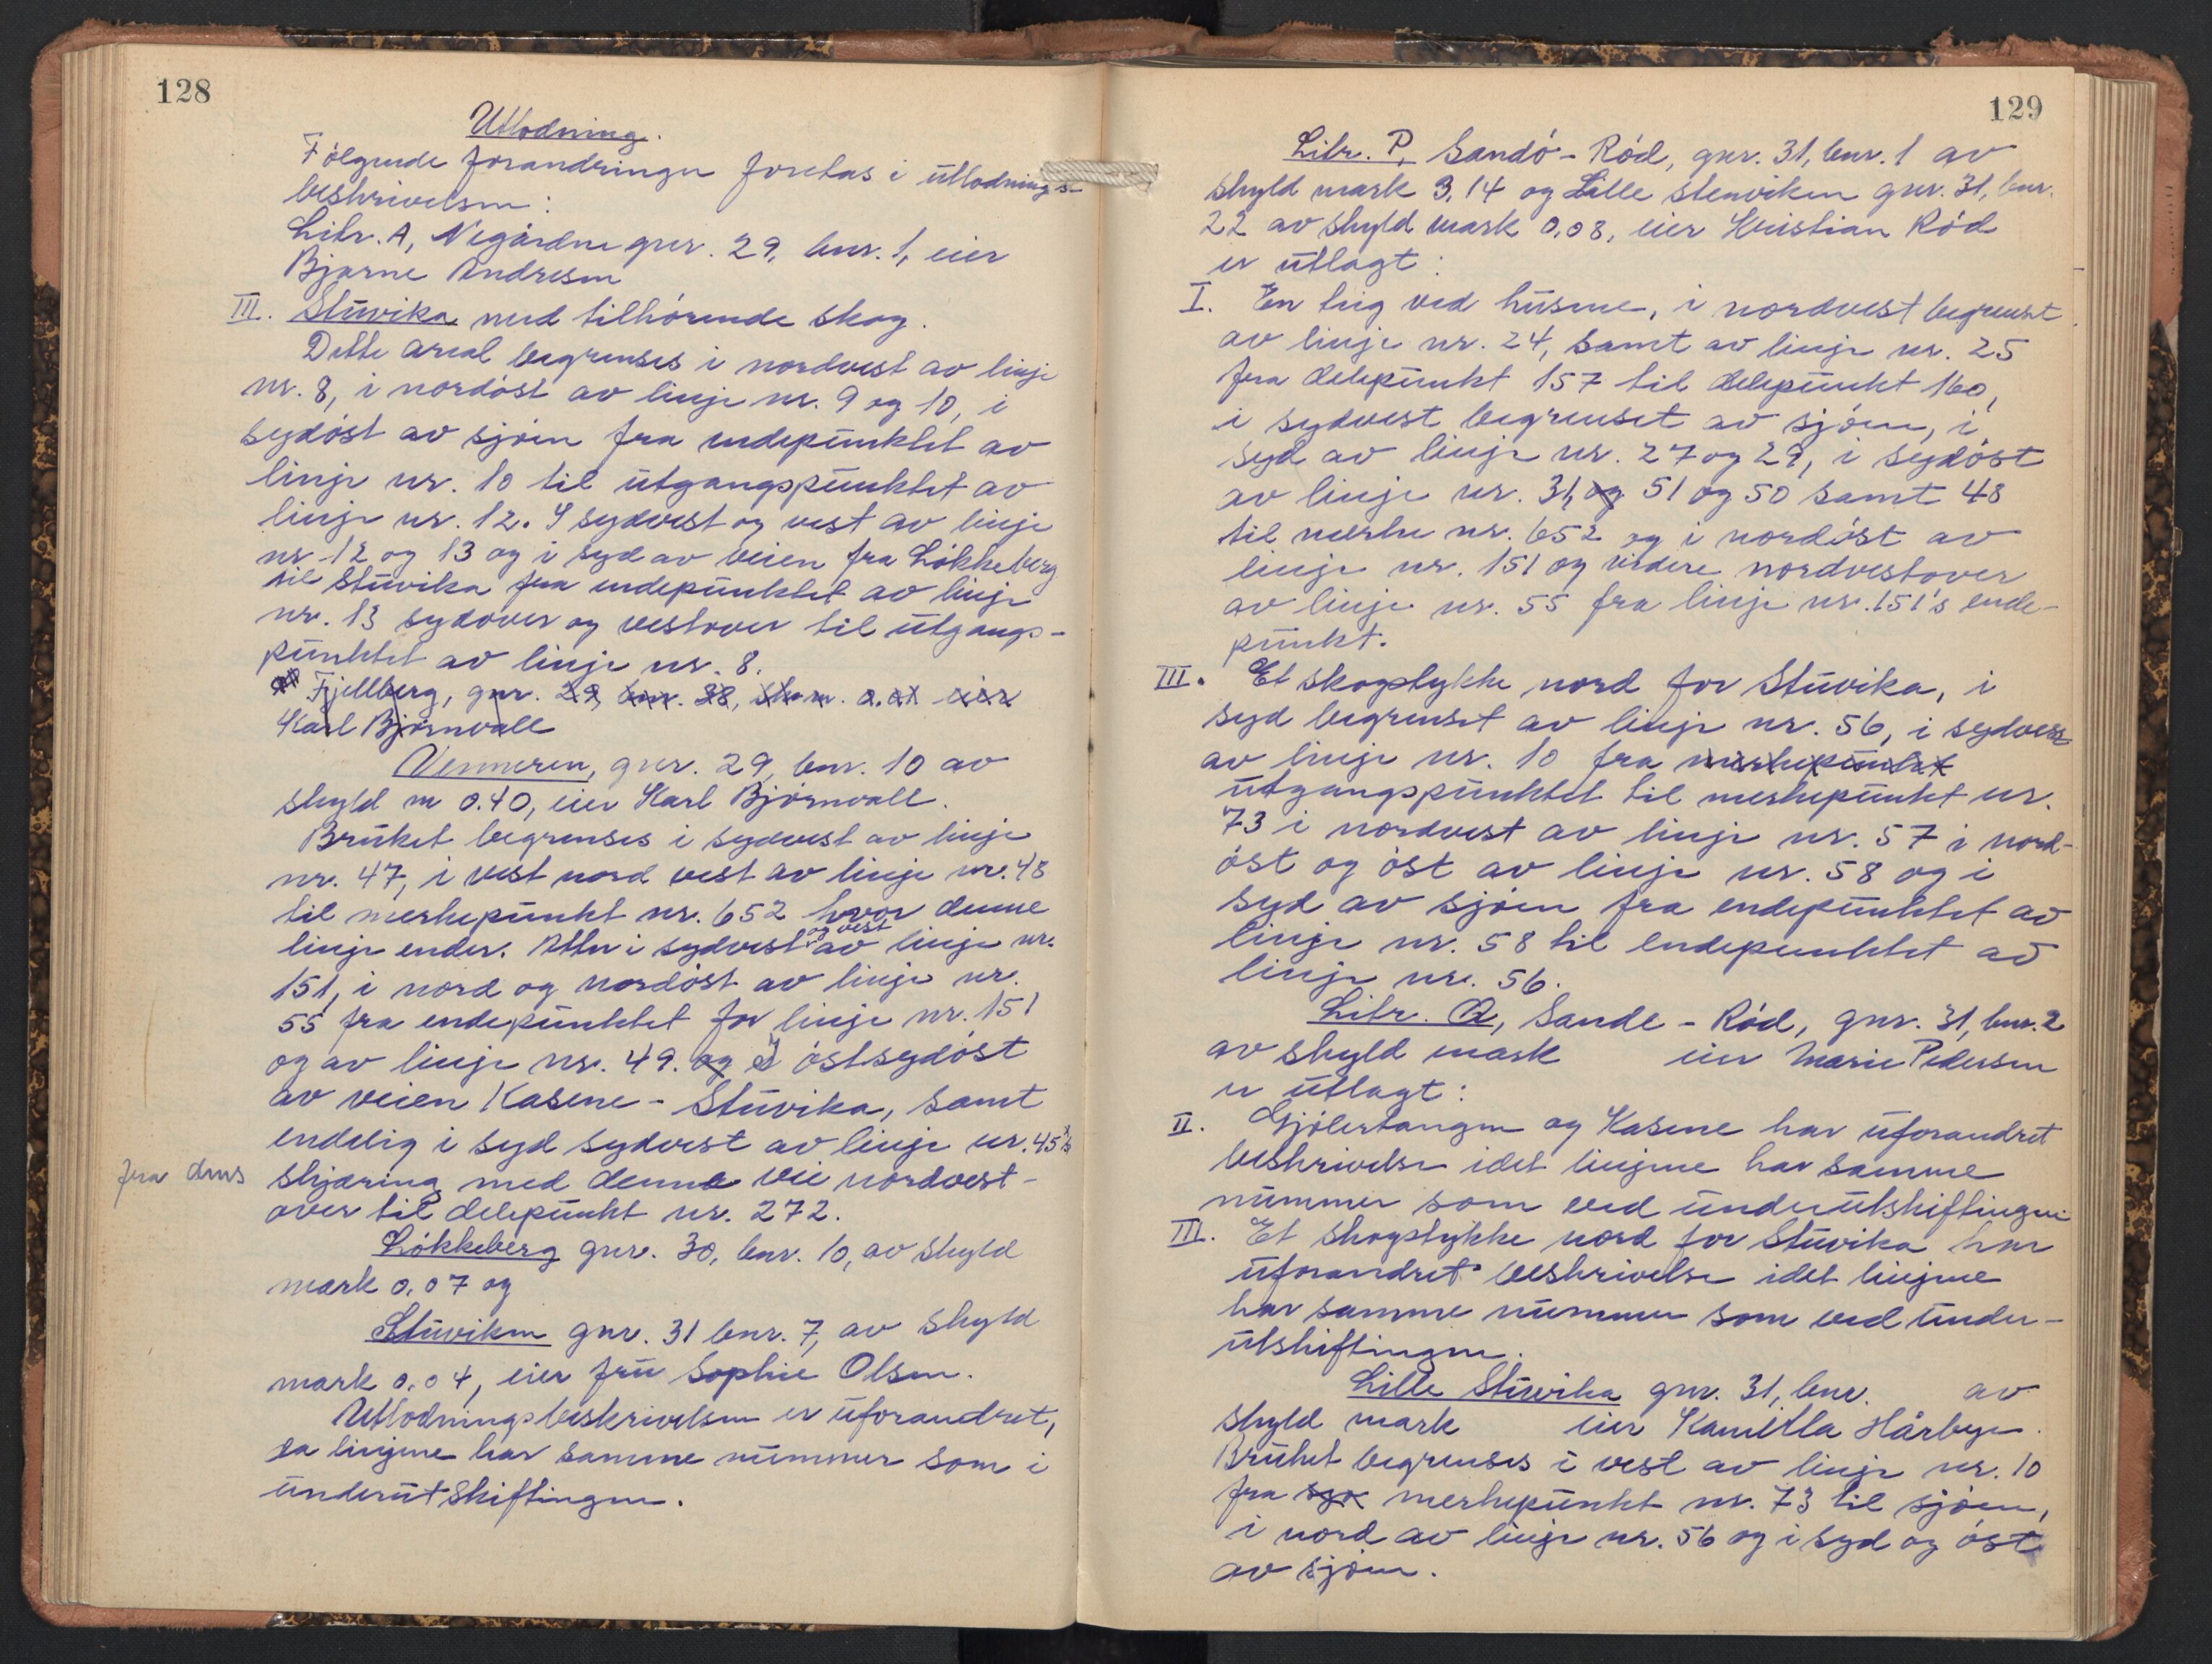 128
Utlodning.
Følgende forandringer foretas i utlodnings-
beskrivelsen:
Litr. A, Negårdne gnr. 29, bnr. 1, eier
Bjarne Andresen
III. Stuvika med tilhørende skog.
Dette areal begrenses i nordvest av linje
nr. 8, i nordöst av linje nr. 9 og 10, i
sydöst av sjöen fra endepunktet av
linje nr. 10 til utgangspunktet av
linje nr. 12. I sydvest og vest av linje
nr. 12 og 13 og i syd av veien fra Lökkeberg
til Stuvika fra endepunktet av linje
nr. 13 sydover og vestover til utgangs-
punktet av linje nr. 8.
Fjellberg, gnr. 29, bnr. 38, sk. m. 0.01 eier
Karl Björnvall
Venneren, gnr. 29, bnr. 10 av
skyld m 0.40, eier Karl Björnvall.
Bruket begrenses i sydvest av linje
nr. 47, i vest nord vest av linje nr. 48
til merkepunkt nr. 652 hvor denne
linje ender. Atter i sydvest og vest av linje nr.
151, i nord og nordöst av linje nr.
55 fra endepunktet for linje nr. 151
og av linje nr. 49. og I östsydöst
av veien Kasene - Stuvika, samt
endelig i syd sydvest av linje nr. 45
fra dens skjæring med denne vei nordvest-
over til delepunkt nr. 272.
Lökkeberg gnr. 30, bnr. 10, av skyld
mark 0.07 og
Stuviken gnr. 31 bnr. 7, av skyld
mark 0.04, eier fru Sophie Olsen.
Utlodningsbeskrivelsen er uforandret,
da linjene har samme nummer som i
underutskiftingen.
129
Litr. P, Sandö - Röd, gnr. 31, bnr. 1 av
skyld mark 3,14 og Lille stenviken gnr. 31, bnr.
22 av skyld mark 0.08, eier Kristian Röd
er utlagt:
I. En teig ved husene, i nordvest begrenset
av linje nr. 24, samt av linje nr. 25
fra delepunkt 157 til delepunkt 160,
i sydvest begrenset av sjöen, i
syd av linje nr. 27 og 29, i sydöst
av linje nr. 31, og 51 og 50 samt 48
til merke nr. 652 og i nordöst av
linje nr. 151 og videre nordvestover
av linje nr. 55 fra linje nr. 151's ende-
punkt.
III. Et skogstykke nord for Stuvika, i
syd begrenset av linje nr. 56, i sydvest
av linje nr. 10 fra merkepunktet
utgangspunktet til merkepunkt nr.
73 i nordvest av linje nr. 57 i nord-
öst og öst av linje nr. 58 og i
syd av sjöen fra endepunktet av
linje nr. 58 til endepunktet av
linje nr. 56.
Litr. Q, Sande - Röd, gnr. 31, bnr. 2
av skyld mark eier Marie Pedersen
er utlagt:
II. Gjölertangen og Kasene har uforandret
beskrivelse idet linjene har samme
nummer som ved underutskiftingen
III. Et skogstykke nord for Stuvika har
uforandret beskrivelse idet linjene
har samme nummer som ved under-
utskiftingen.
Lille Stuvika gnr. 31, bnr. av
skyld mark eier Kamilla Hårbye.
Bruket begrenses i vest av linje nr. 10
fra merkepunkt nr. 73 til sjöen,
i nord av linje nr. 56 og i syd og öst
av sjöen.